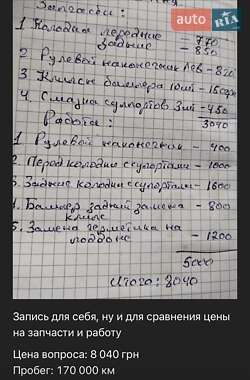 AUTO RIA
Запчасти:
1 Колодки передние - 770
задние - 850
2 Рулевой наконечник Лев - 820
3 Клипсы бампера 10шт - 150
4. Смазка суппортов 3шт - 450
3040
Работа:
1 Рулевой наконечник - 400
2. Перед колодки с суппортами - 1000
3. Задние колодки с суппортами - 1600
4. Бампер задний замена клипс - 800
5. Замена герметика на поддоне - 1200
5000
Итого: 8040
Запись для себя, ну и для сравнения цены
на запчасти и работу
Цена вопроса: 8 040 грн
Пробег: 170 000 км